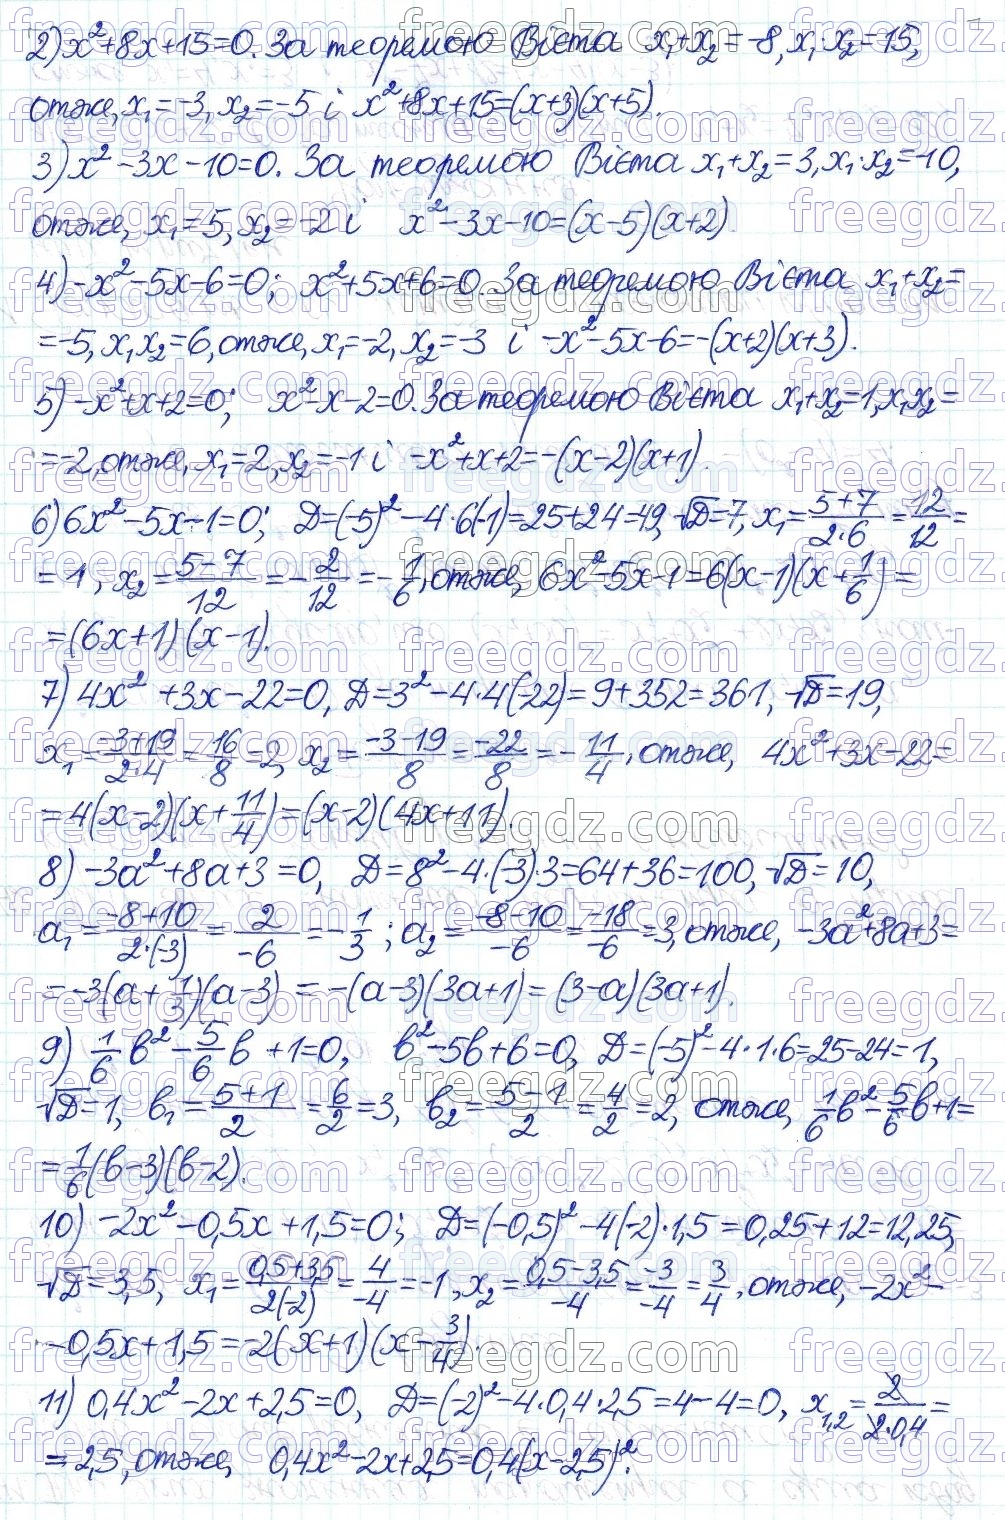 2) x²+8x+15=0. За теоремою Вієта x₁+x₂=-8, x₁·x₂=15,
отже, x₁=-3, x₂=-5 і x²+8x+15=(x+3)(x+5).
3) x²-3x-10=0. За теоремою Вієта x₁+x₂=3, x₁·x₂=-10,
отже, x₁=5, x₂=-2 і x²-3x-10=(x-5)(x+2).
4) -x²-5x-6=0; x²+5x+6=0. За теоремою Вієта x₁+x₂=
=-5, x₁x₂=6, отже, x₁=-2, x₂=-3 і -x²-5x-6=-(x+2)(x+3).
5) -x²+x+2=0; x²-x-2=0. За теоремою Вієта x₁+x₂=1, x₁x₂=
=-2, отже, x₁=2, x₂=-1 і -x²+x+2=-(x-2)(x+1).
6) 6x²-5x-1=0; D=(-5)²-4·6(-1)=25+24=49, √D=7, x₁=(5+7)/(2·6)=12/12=
=1, x₂=(5-7)/12=-2/12=-1/6, отже, 6x²-5x-1=6(x-1)(x+1/6)=
=(6x+1)(x-1).
7) 4x²+3x-22=0, D=3²-4·4(-22)=9+352=361, √D=19,
x₁=(-3+19)/(2·4)=16/8=2, x₂=(-3-19)/8=-22/8=-11/4, отже, 4x²+3x-22=
=4(x-2)(x+11/4)=(x-2)(4x+11).
8) -3a²+8a+3=0, D=8²-4·(-3)·3=64+36=100, √D=10,
a₁=(-8+10)/(2·(-3))=2/-6=-1/3; a₂=(-8-10)/-6=-18/-6=3, отже, -3a²+8a+3=
=-3(a+1/3)(a-3)=-(a-3)(3a+1)=(3-a)(3a+1).
9) 1/6b²-5/6b+1=0, b²-5b+6=0, D=(-5)²-4·1·6=25-24=1,
√D=1, b₁=(5+1)/2=6/2=3, b₂=(5-1)/2=4/2=2, отже, 1/6b²-5/6b+1=
=1/6(b-3)(b-2).
10) -2x²-0,5x+1,5=0; D=(-0,5)²-4(-2)·1,5=0,25+12=12,25,
√D=3,5, x₁=(0,5+3,5)/(2(-2))=4/-4=-1, x₂=(0,5-3,5)/-4=-3/-4=3/4, отже, -2x²-
-0,5x+1,5=-2(x+1)(x-3/4).
11) 0,4x²-2x+2,5=0, D=(-2)²-4·0,4·2,5=4-4=0, x₁,₂=2/(2·0,4)=
=2,5, отже, 0,4x²-2x+2,5=0,4(x-2,5)².